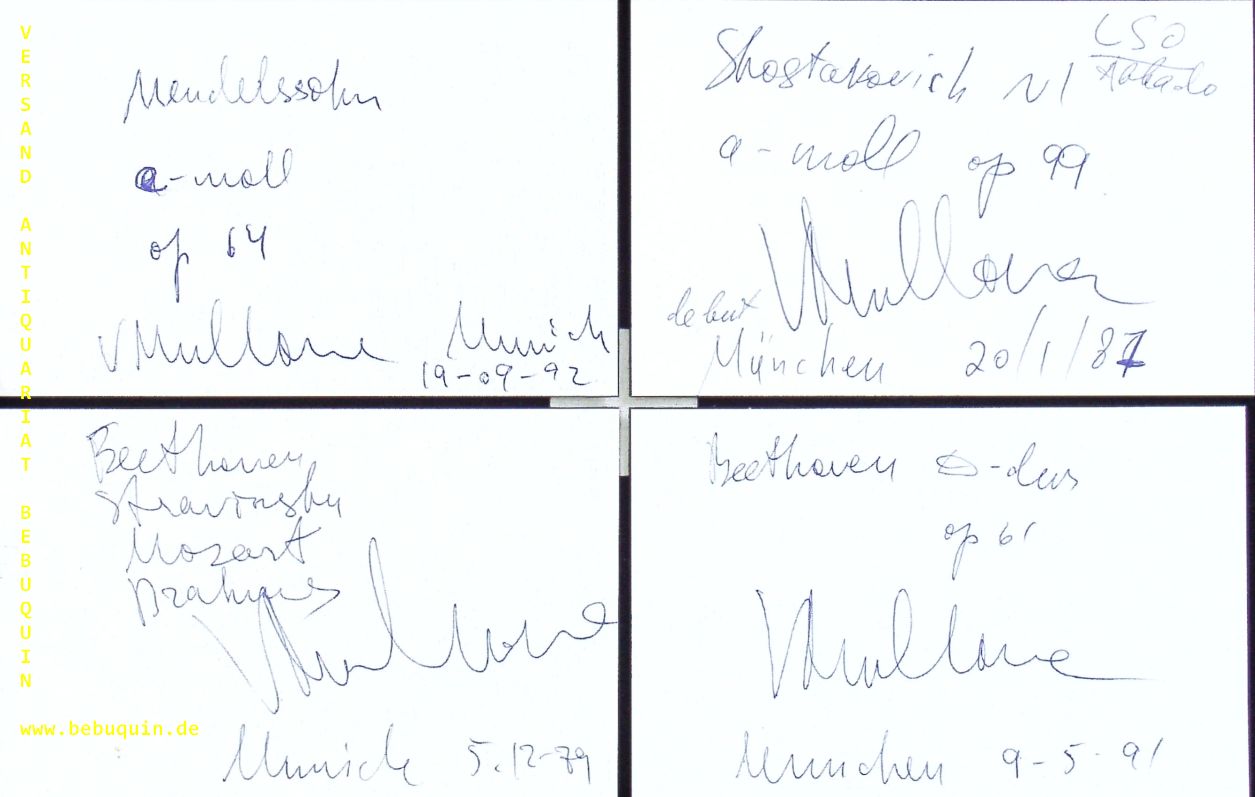 VERSAND ANTIQUARIAT BEBUQUIN
www.bebuquin.de
Mendelssohn
a-moll
op 64
VMullova Munich
19-09-92
Shostakovich N1 LSO
Abbado
a-moll op 99
VMullova
debut
München 20/1/87
Beethoven
Stravinsky
Mozart
Brahms
VMullova
Munich 5.12-79
Beethoven D-dur
op 61
VMullova
Munchen 9-5-91